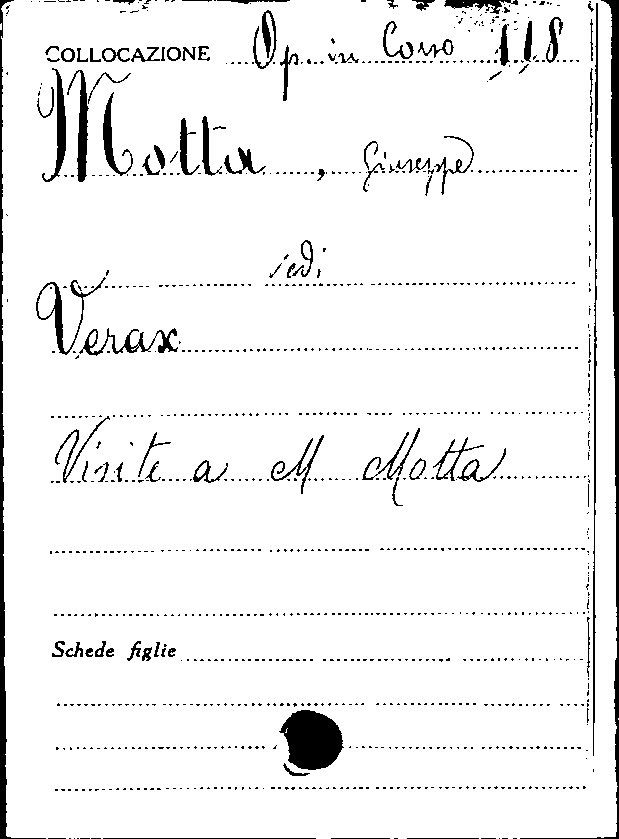 COLLOCAZIONE Op. in Corso 118
Motta, Giuseppe
vedi
Verax
Visite a M Motta
Schede figlie